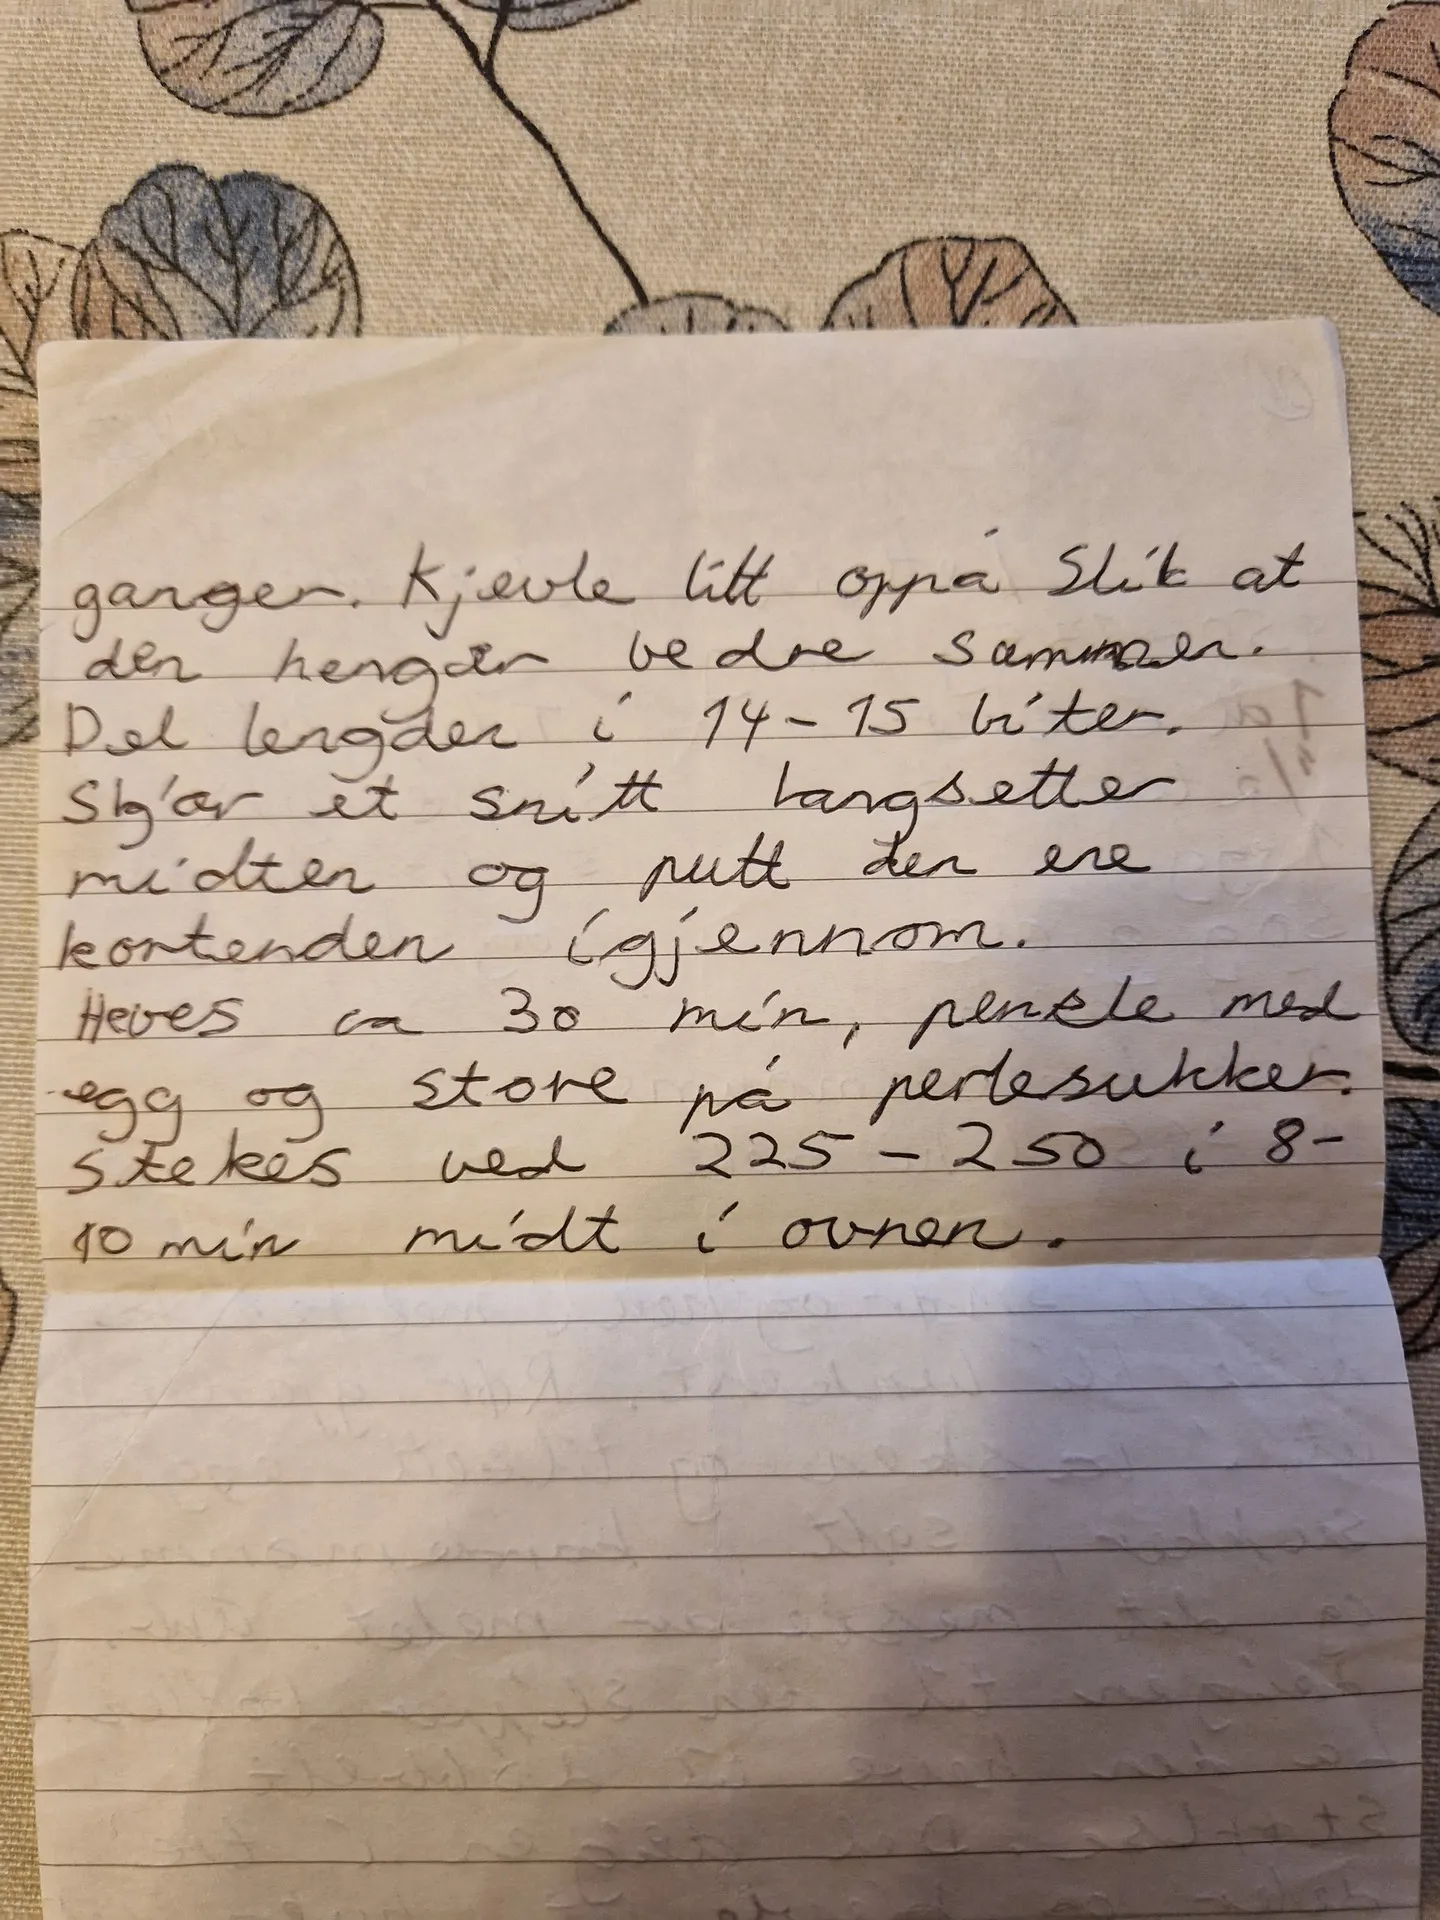 ganger. Kjevle litt oppå slik at
den henger bedre sammen.
Del lengden i 14-15 biter.
Skjær et snitt langsetter
midten og putt den ene
kortenden igjennom.
Heves ca 30 min, pensle med
egg og strø på perlesukker.
Stekes ved 225-250 i 8-
10 min midt i ovnen.